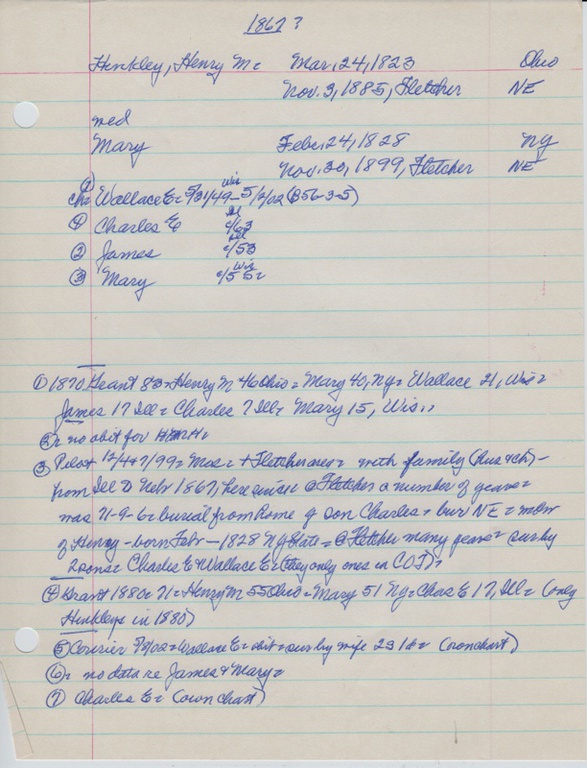 1867?
Hinkley, Henry M= Mar. 24, 1823 Ohio
Nov. 3, 1885, Fletcher NE
med
Mary Febr. 24, 1828 Ny
Nov. 30, 1899, Fletcher NE
ch= ① Wallace E= 5/31/49 Wis - 5/2/02 (B56-3-5)
④ Charles E c/63 Ill
② James c/53 Ill
③ Mary c/55= Wis
① 1870 Grant 83= Henry M 46 Ohio= Mary 40, Ny= Wallace 21, Wis=
James 17 Ill= Charles 7 Ill= Mary 15, Wis=
②= no obit for HMH=
③ Pilot 12/4+7/99= Mrs= + Fletcher area= with family (hus & ch) -
from Ill to Nebr 1867, here since= @ Fletcher a number of years=
was 71-9-6= burial from home of son Charles= bur NE= mom
of Henry - born Febr - 1828 Ny State= @ Fletcher many years= sur by
2 sons= Charles E & Wallace E= (they only ones in CO?)=
④ Grant 1880= 71= Henry M 55 Ohio= Mary 51 Ny= Chas E 17, Ill= (only
Hinkleys in 1880)
⑤ Courier 5/8/02= Wallace E= obit= sur by wife 2s 1d= (own chart)
⑥= no data re James & Mary=
⑦ Charles E= (own chart)